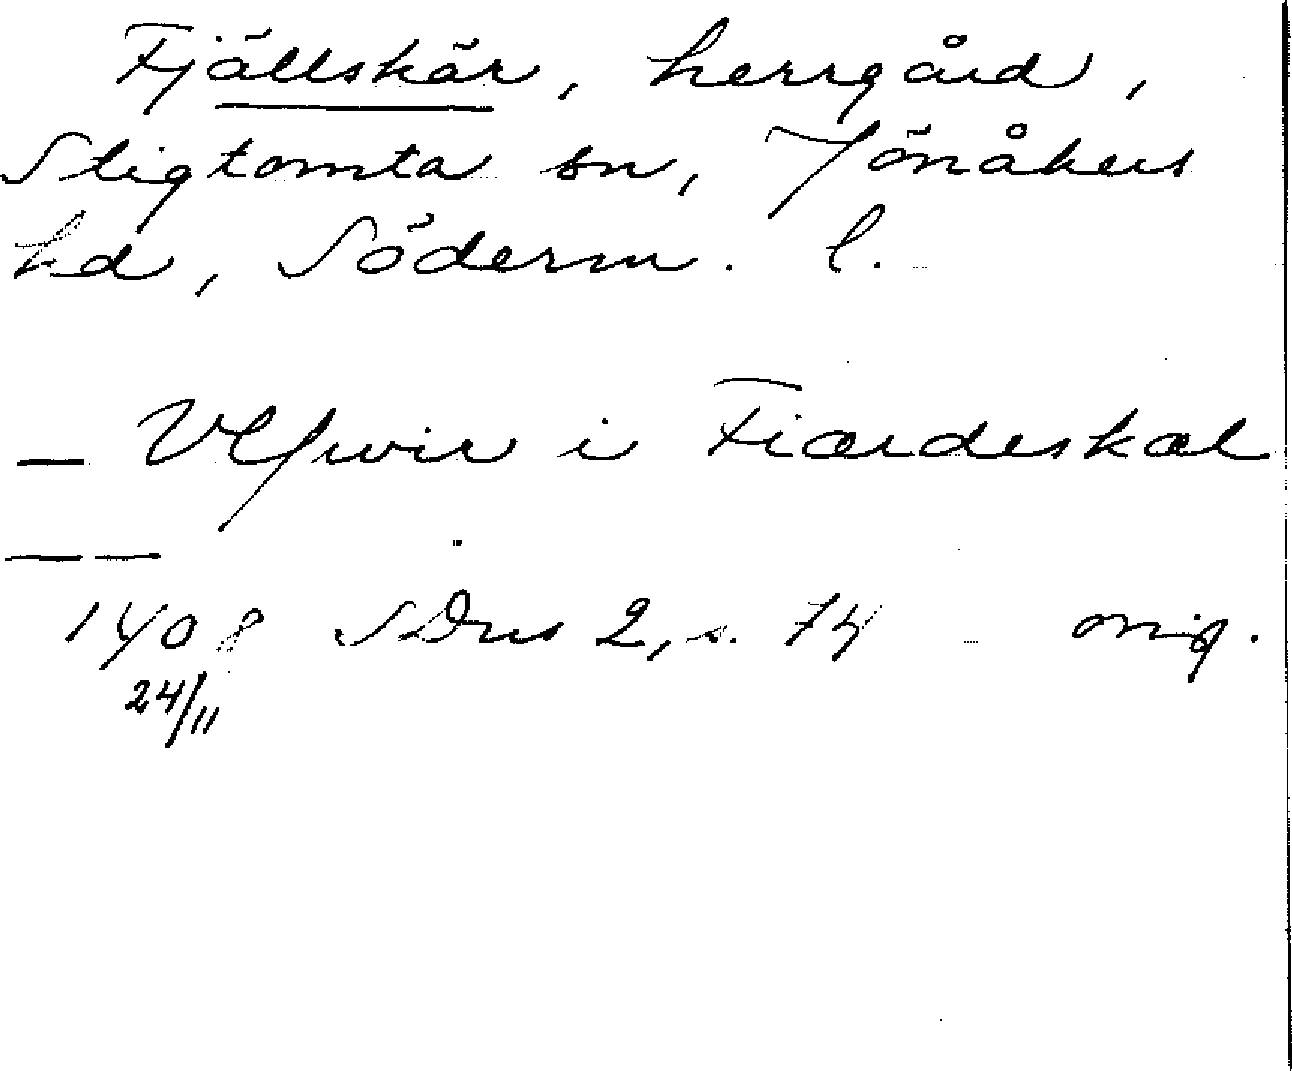 Fjällskär, herrgård,
Stigtomta sn, Jönåkers
hd, Söderm. l.
— Vlfwir i Fiærdeskæl
— —
1408 SDns 2, s. 74 orig.
24/11